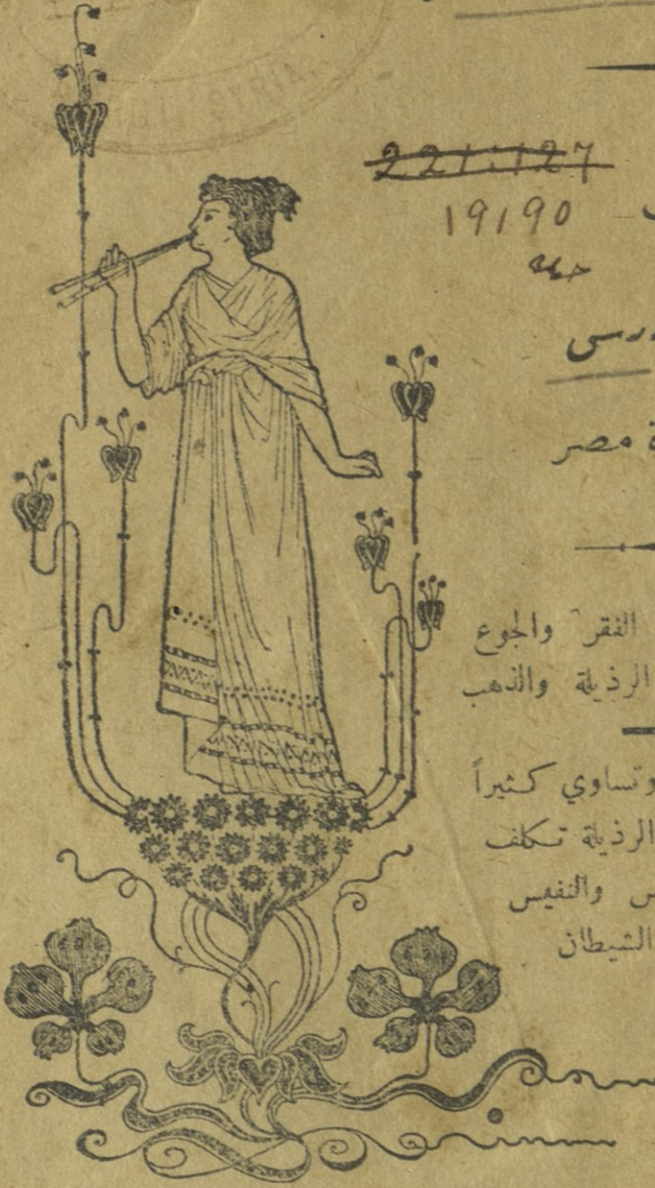 221127
19190
مصر
الفقر والجوع
الرذيلة والذهب
وتساوي كثيراً
الرذيلة تكلف
والنفيس
الشيطان